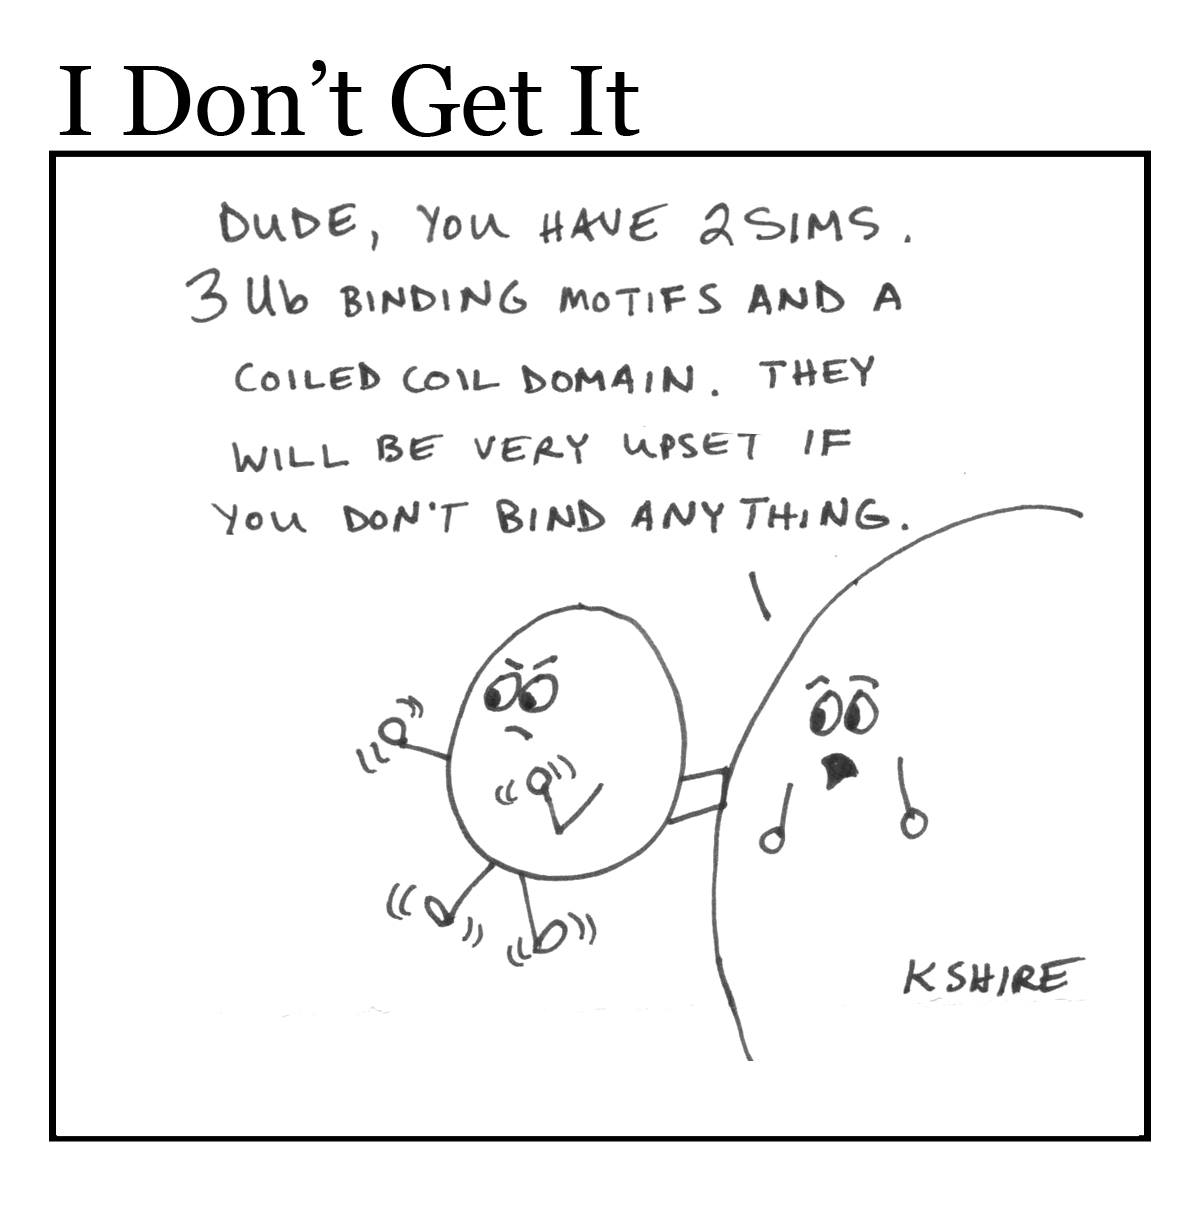 I Don’t Get It
DUDE, YOU HAVE 2 SIMS.
3 Ub BINDING MOTIFS AND A
COILED COIL DOMAIN. THEY
WILL BE VERY UPSET IF
YOU DON'T BIND ANYTHING.
KSHIRE